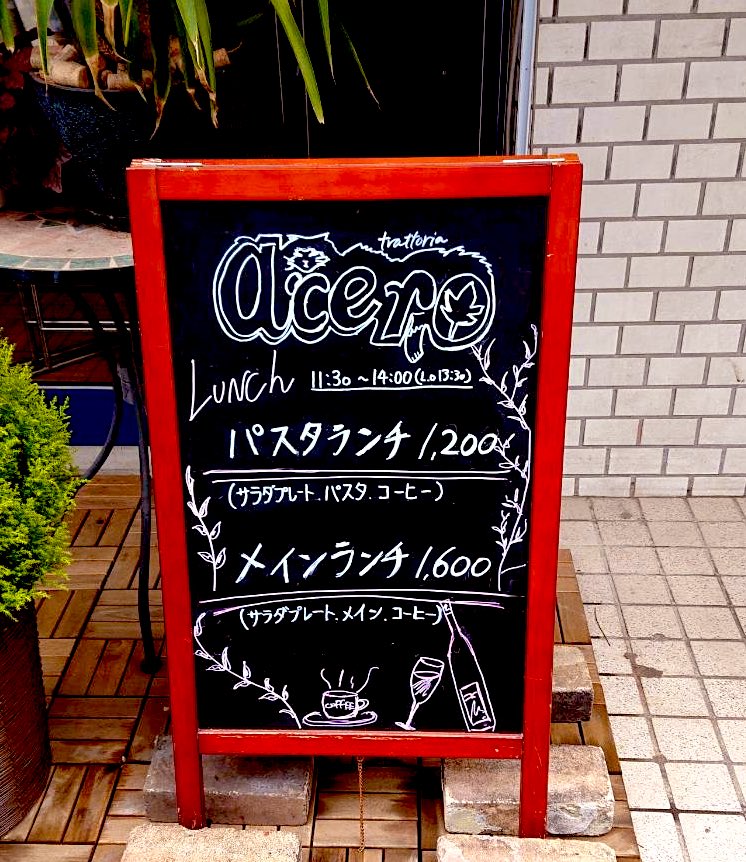 trattoria
acero
Lunch 11:30 ~14:00 (L.o 13:30)
パスタランチ 1,200
(サラダプレート.パスタ.コーヒー)
メインランチ 1,600
(サラダプレート.メイン.コーヒー)
COFFEE